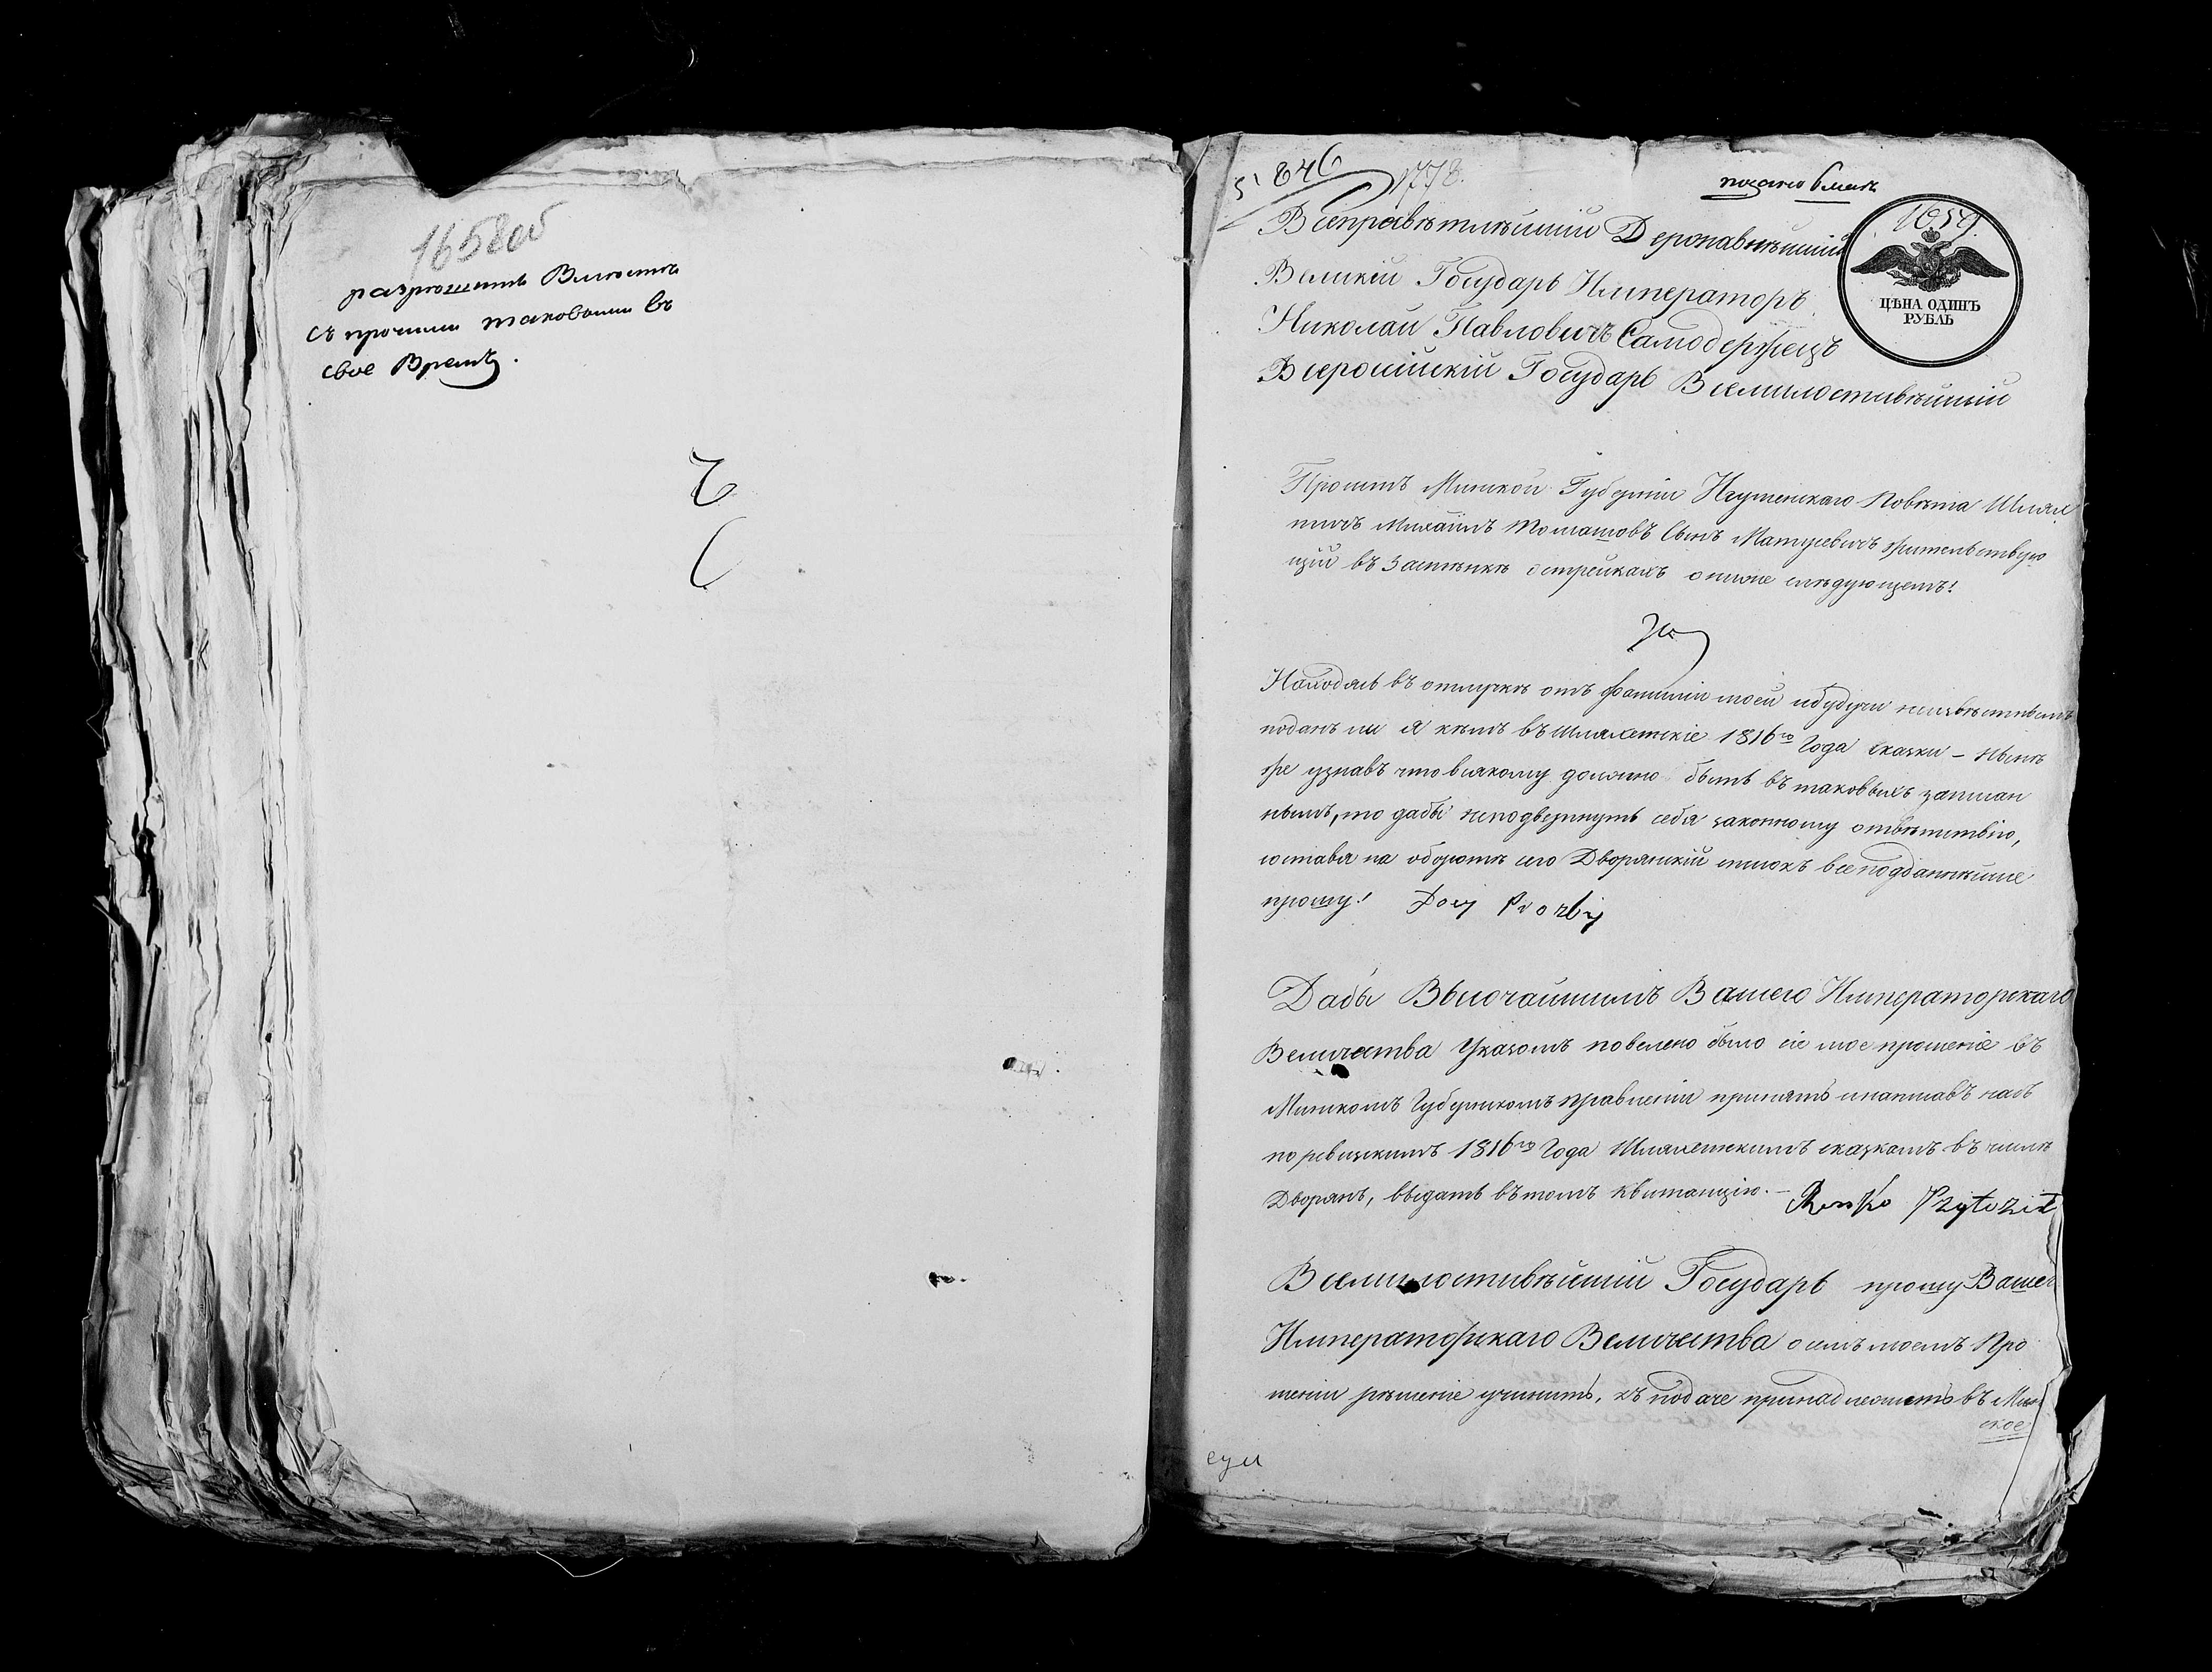 1658 об
разрешить Вместе
съ прочими таковыми въ
свое Время.
5 846
1778.
1659.
ЦѢНА ОДИНЪ
РУБЛЬ
Всепресвѣтлѣйшій Державнѣйшій
Великій Государь Императоръ
Николай Павловичъ Самодержецъ
Всеросійскій Государь Всемилостивѣйшій
Проситъ Минской Губерніи Игуменскаго Повѣта Шлях
тичъ Михаилъ Томашовъ Сынъ Матусевичъ жительствую
щій въ Застѣнкѣ Острейкахъ о ниже слѣдующемъ!
Находясь въ отлучкѣ отъ фамиліи моей и будучи неизвѣстнымъ
поданъ ли я кѣмъ въ Шляхетскіе 1816го Года сказки – Нынѣ
же узнавъ что всякому должно быть въ таковыхъ записан
нымъ, то дабы неподвергнуть себя законному отвѣтствію,
составя на оборотѣ сего Дворянскій списокъ всеподданнѣйше
прошу! Do sey Prozby
Дабы Высочайшимъ Вашего Императорскаго
Величества Указомъ повелено было сіе мое прошеніе въ
Минскомъ Губернскомъ Правленіи принять и написавъ насъ
по ревизскимъ 1816го Года Шляхетскимъ сказкамъ въ числѣ
Дворянъ, выдать въ томъ Квитанцію. – Renko Przytozit
Всемилостивѣйшій Государь прошу Вашего
Императорскаго Величества о семъ моемъ Про
шеніи рѣшеніе учинить, къ подаче принадлежитъ въ Мин
ское